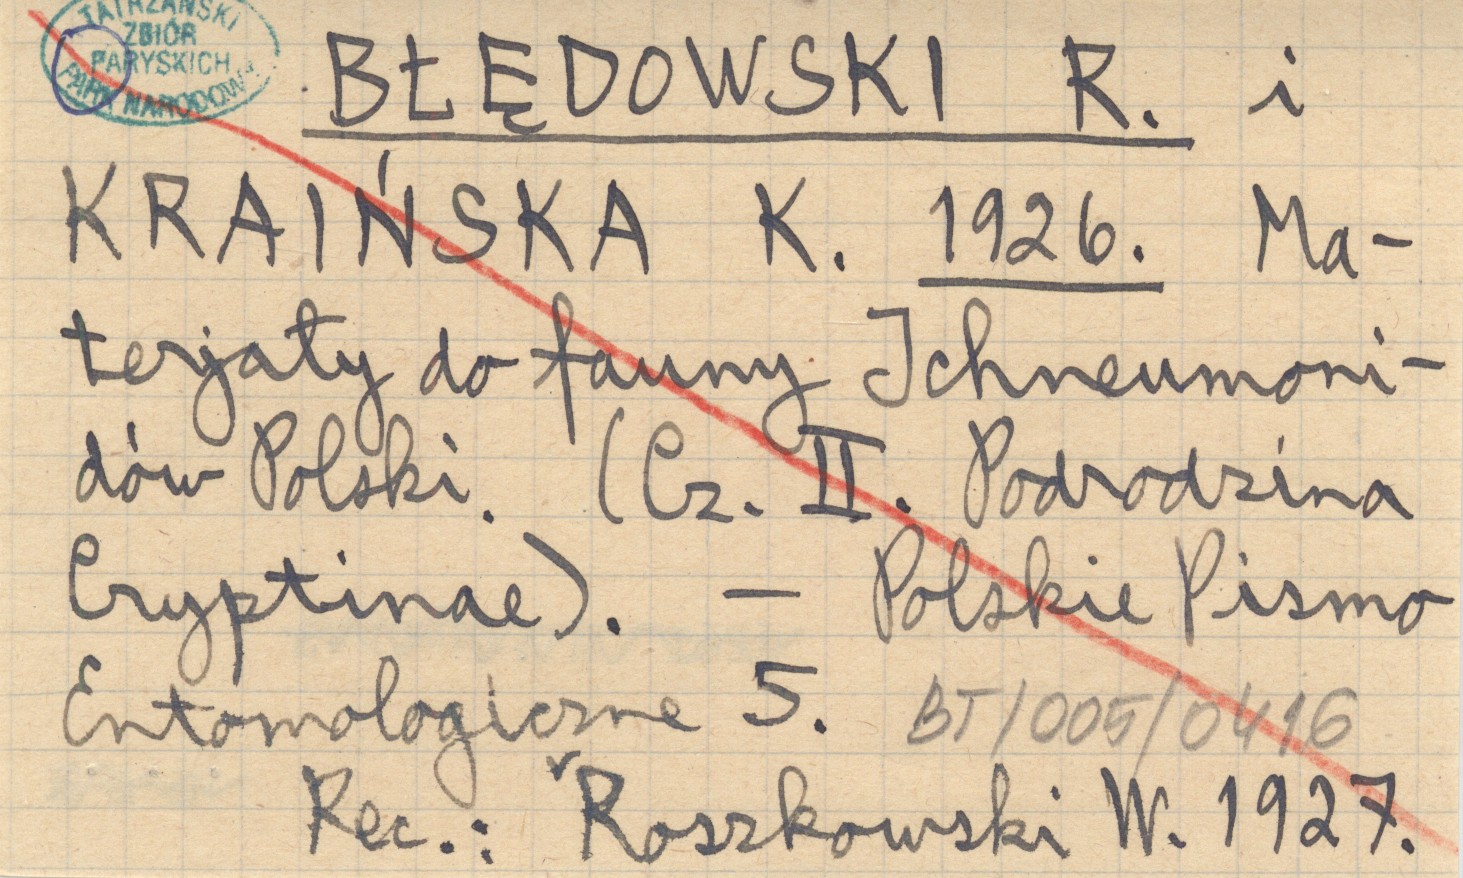 TATRZAŃSKI
ZBIÓR
PARYSKICH
PARK NARODOWY
BŁĘDOWSKI R. i
KRAIŃSKA K. 1926. Ma-
terjały do fauny Ichneumoni-
dów Polski. (Cz. II. Podrodzina
Cryptinae). — Polskie Pismo
Entomologiczne 5. BT/005/0416
Rec.: Roszkowski W. 1927.